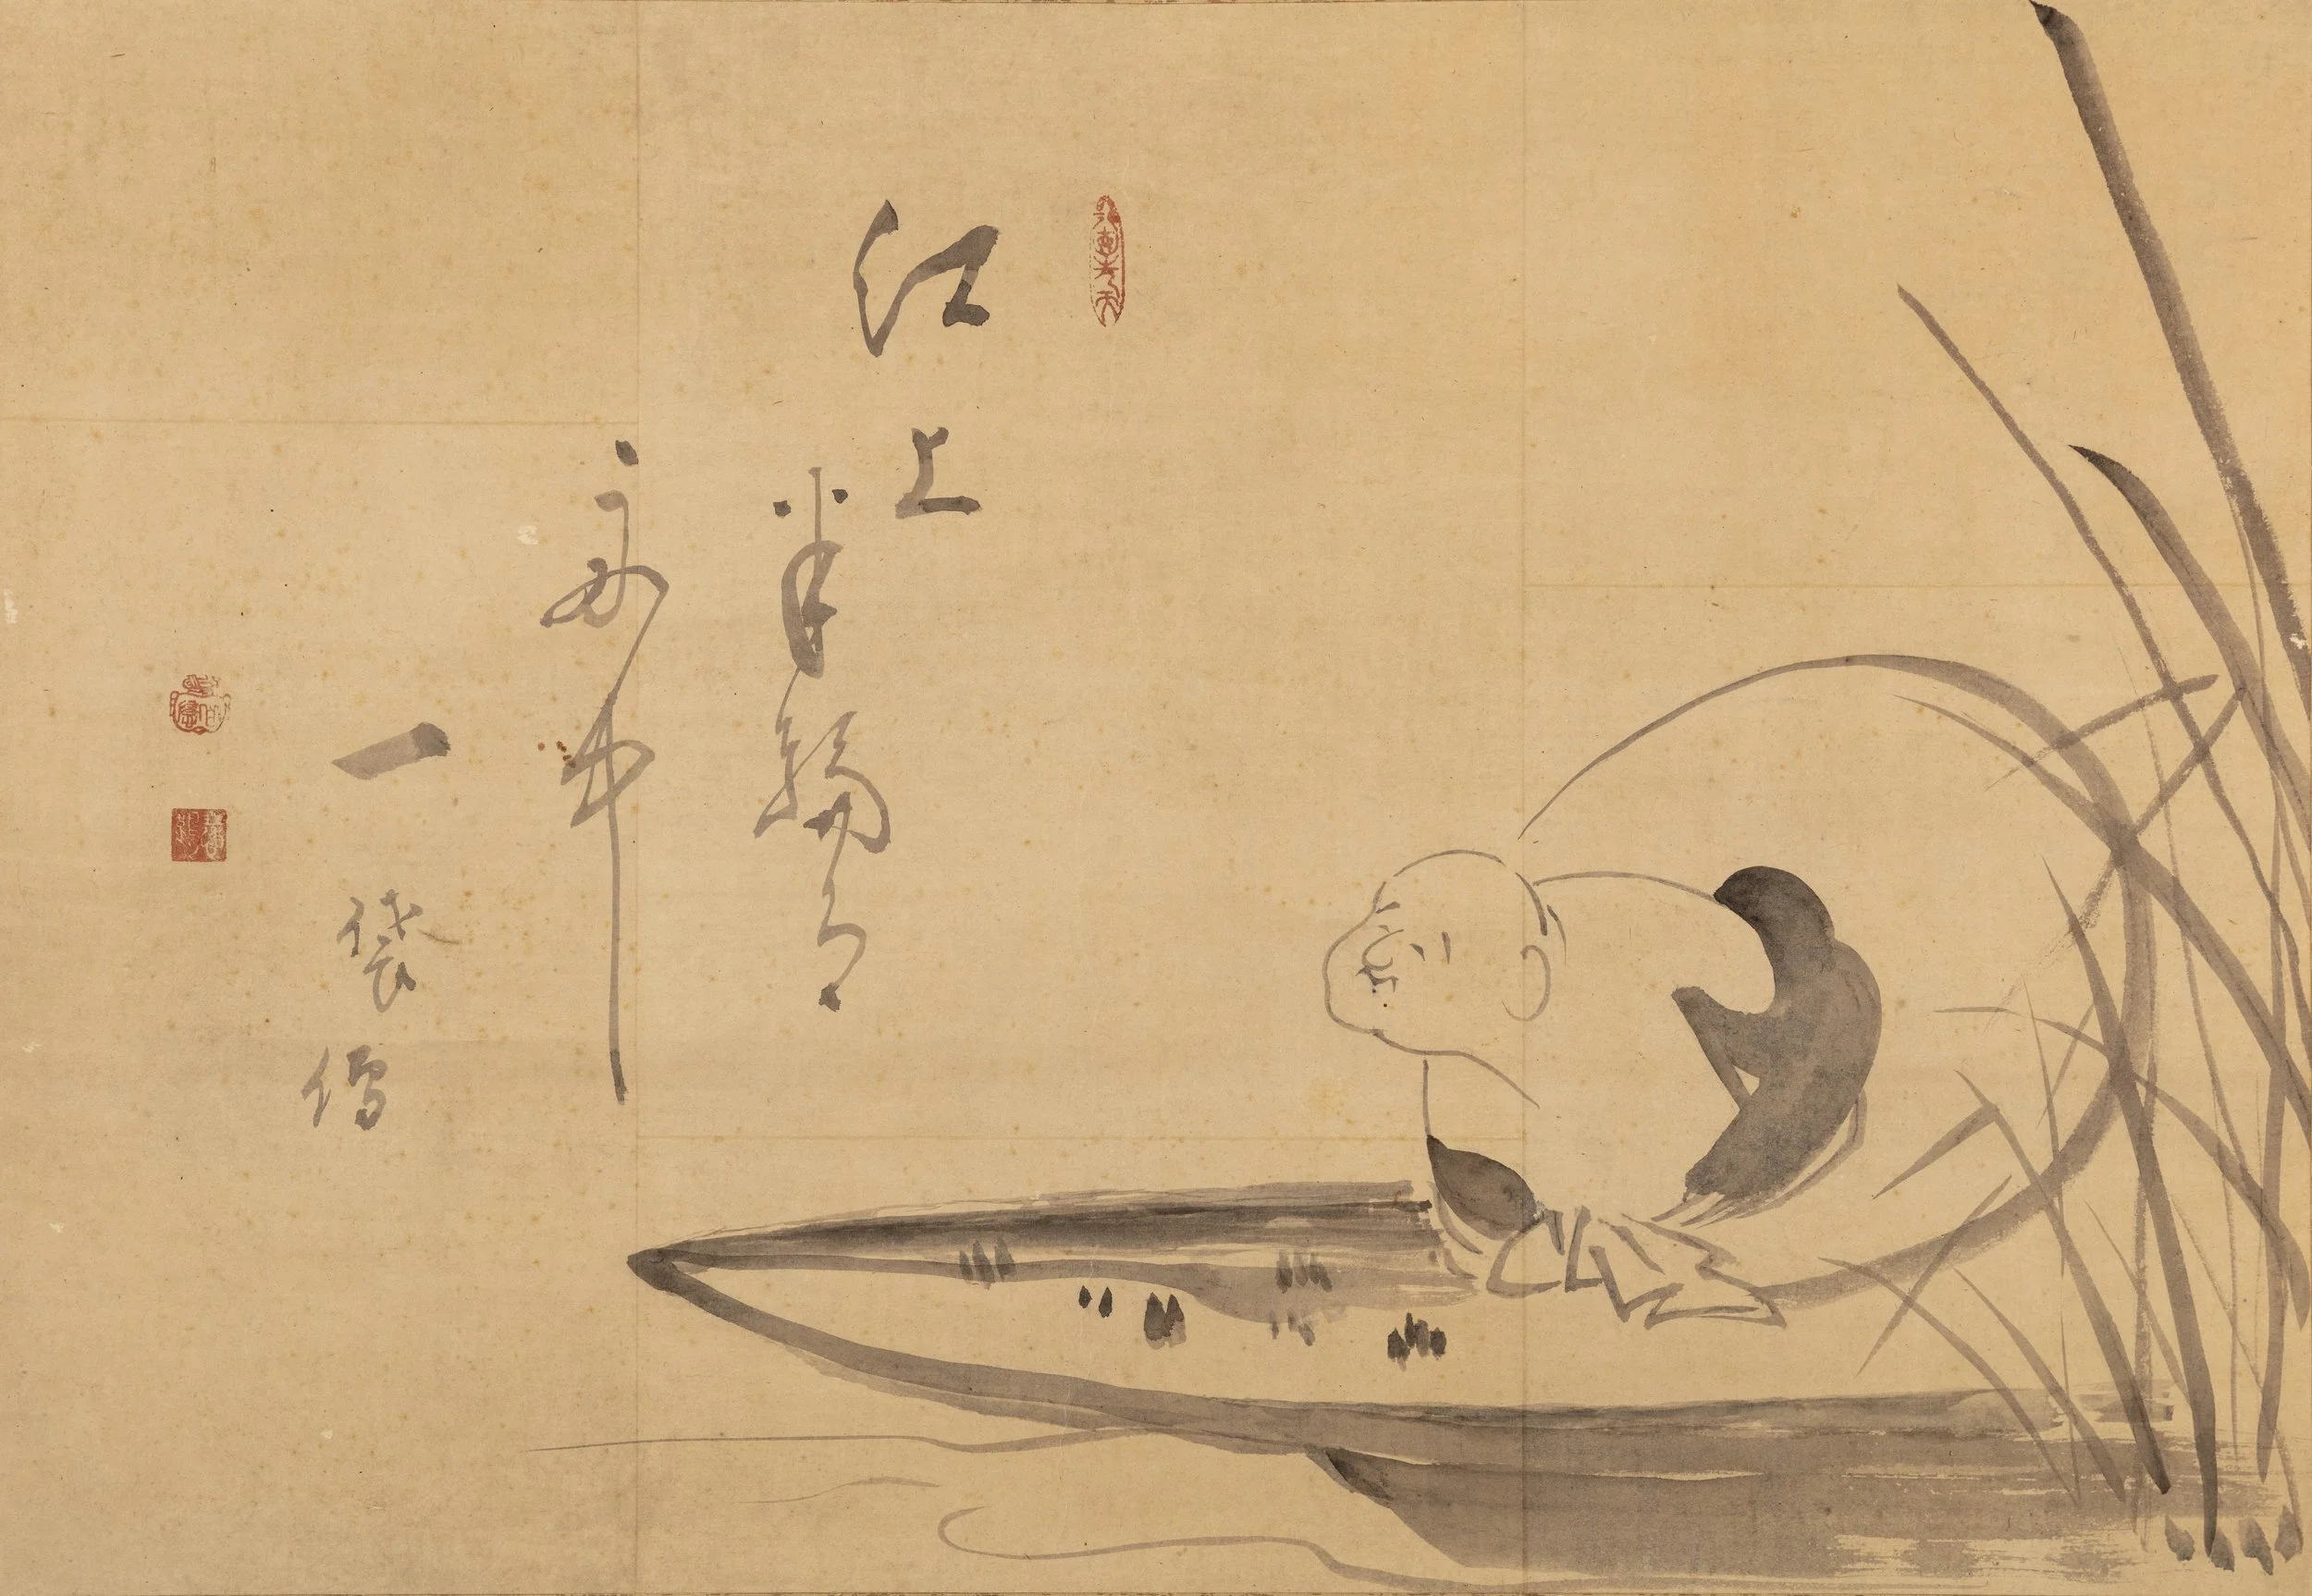 江上
半輪月
舟中
一袋僧